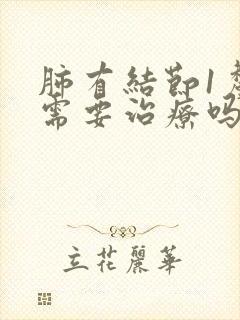 肺有結節1
需要治療吗
立花麗華